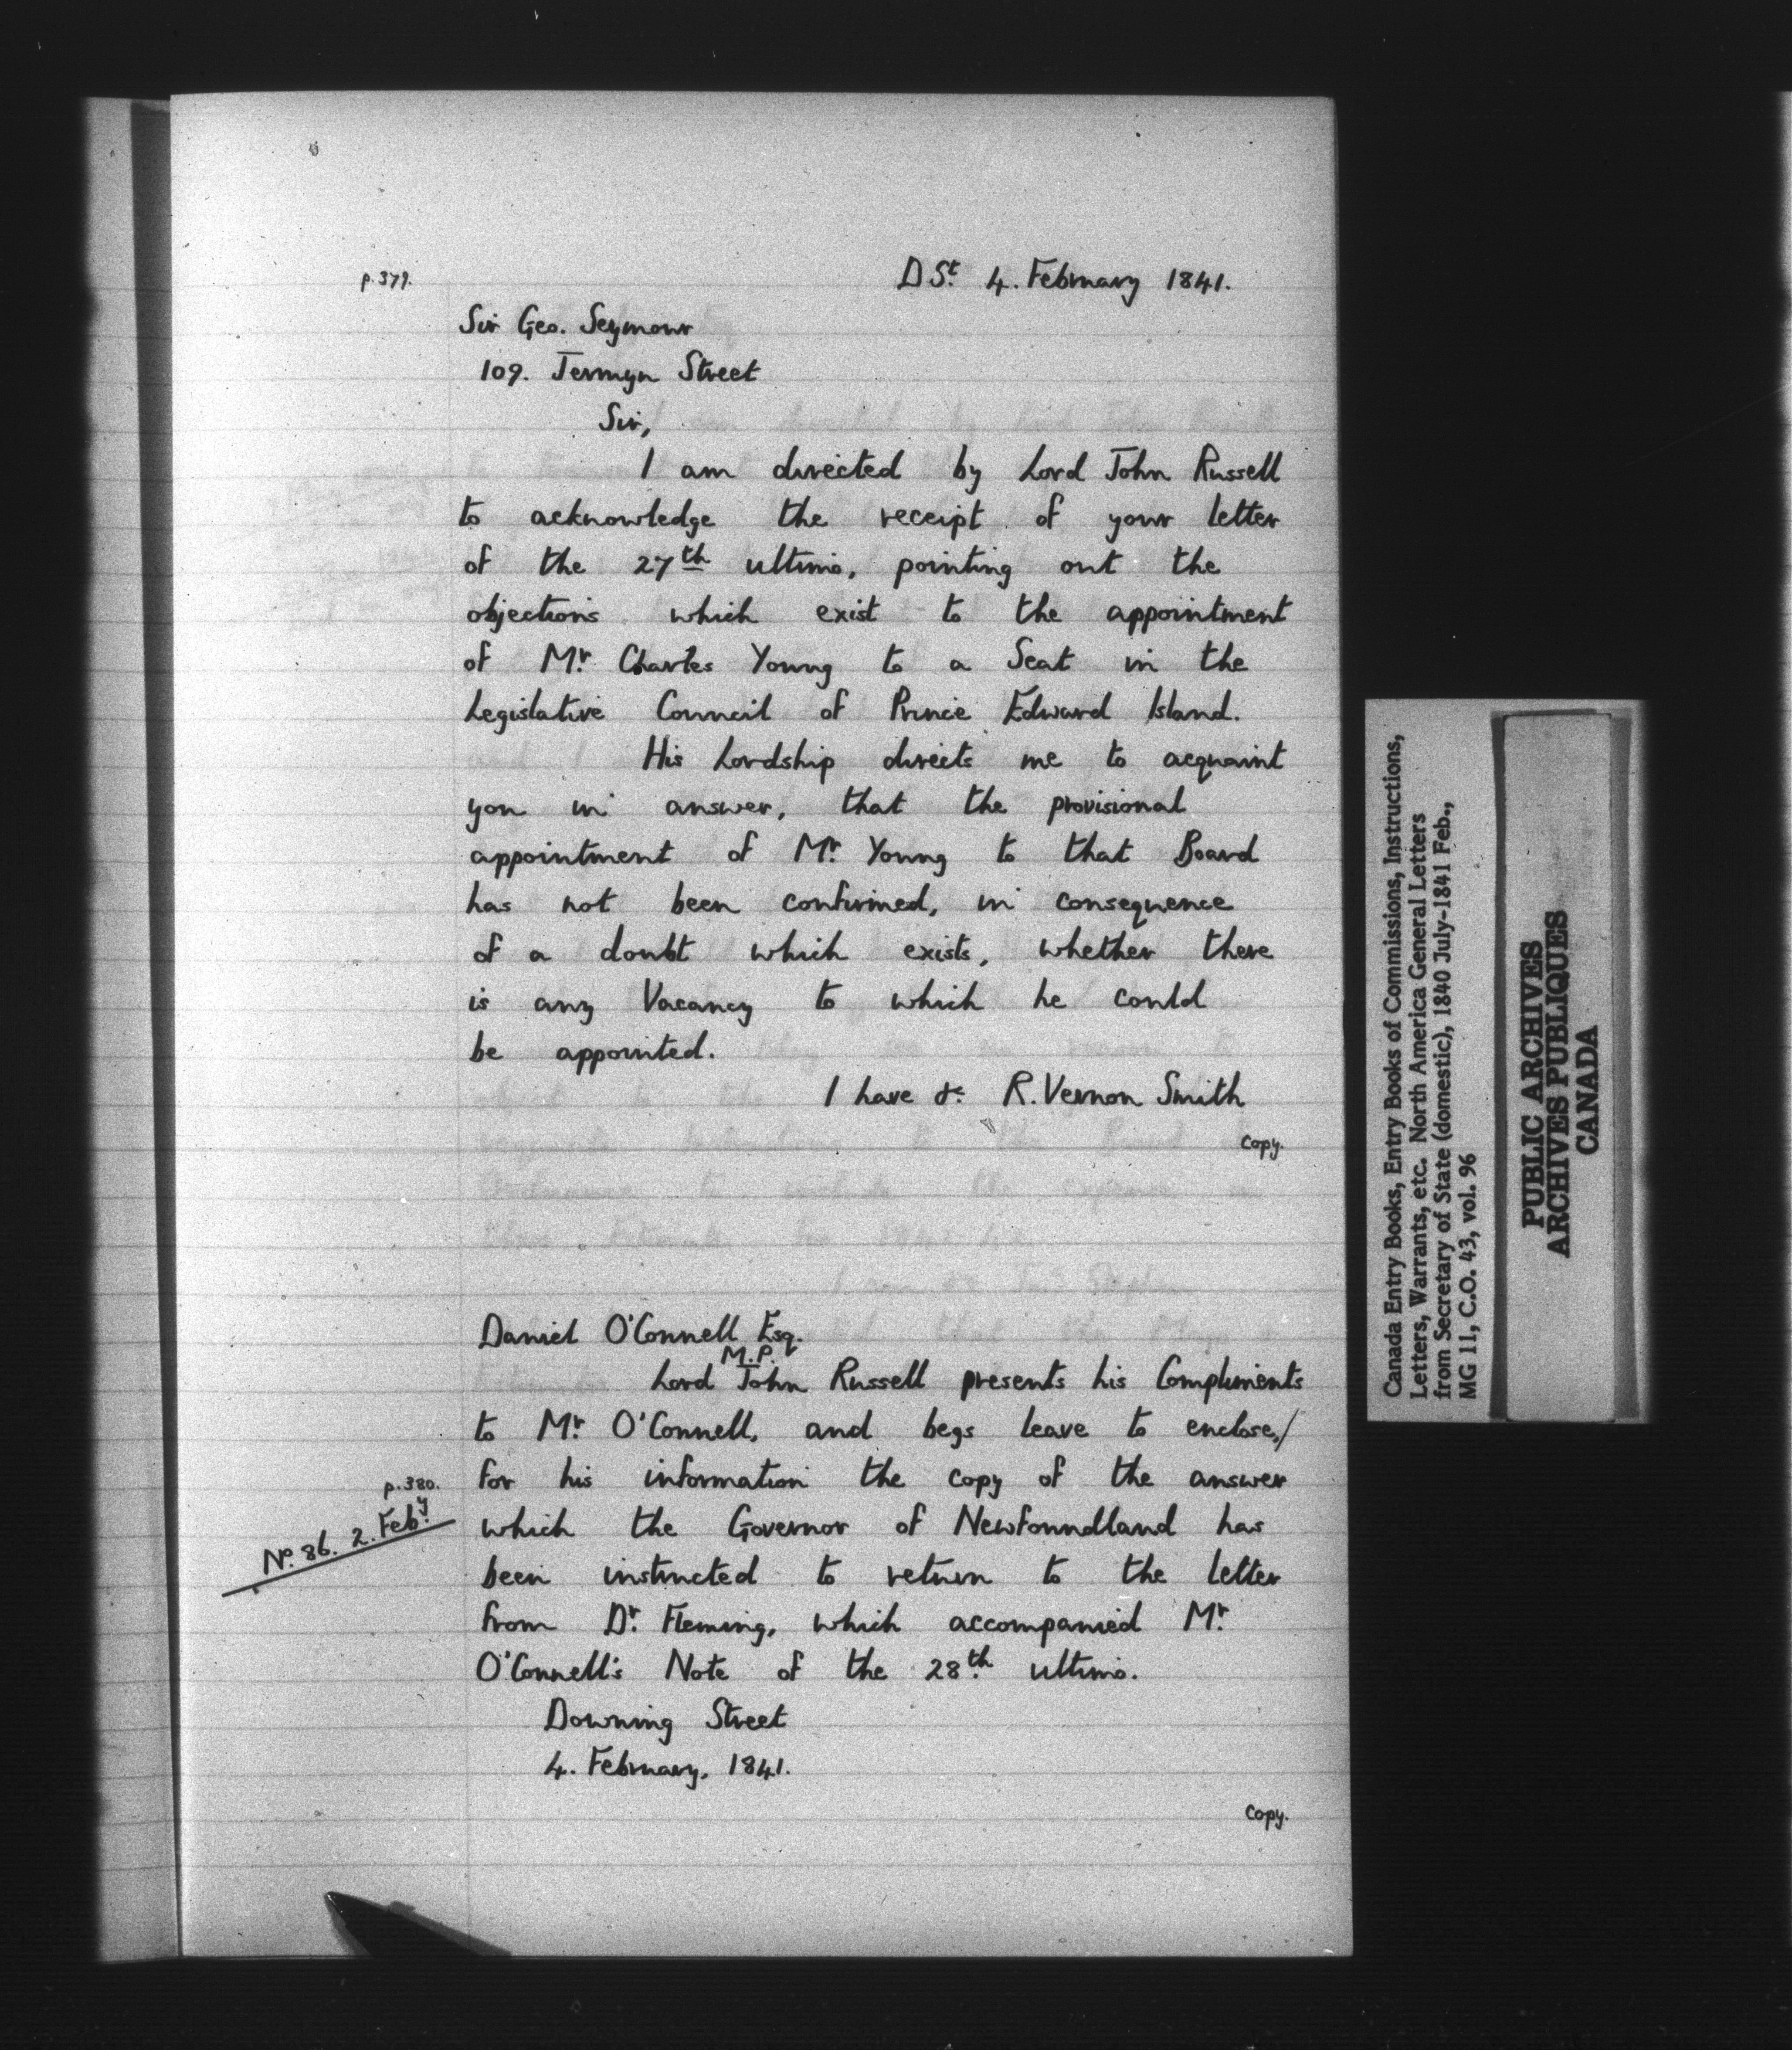 p.379.
D St. 4. February 1841.
Sir Geo. Seymour
109. Jermyn Street
Sir,
I am directed by Lord John Russell
to acknowledge the receipt of your letter
of the 27th ultimo, pointing out the
objections which exist to the appointment
of Mr. Charles Young to a Seat in the
Legislative Council of Prince Edward Island.
His Lordship directs me to acquaint
you in answer, that the provisional
appointment of Mr. Young to that Board
has not been confirmed, in consequence
of a doubt which exists, whether there
is any Vacancy to which he could
be appointed.
I have &c. R. Vernon Smith
Copy.
Daniel O'Connell Esq.
M.P.
Lord John Russell presents his Compliments
to Mr. O'Connell, and begs leave to enclose,/
for his information the copy of the answer
p.380.
No. 86. 2. Feby.
which the Governor of Newfoundland has
been instructed to return to the letter
from Dr. Fleming, which accompanied Mr.
O'Connell's Note of the 28th. ultimo.
Downing Street
4. February, 1841.
Copy.
Canada Entry Books, Entry Books of Commissions, Instructions,
Letters, Warrants, etc. North America General Letters
from Secretary of State (domestic), 1840 July-1841 Feb.,
MG 11, C.O. 43, vol. 96
PUBLIC ARCHIVES
ARCHIVES PUBLIQUES
CANADA